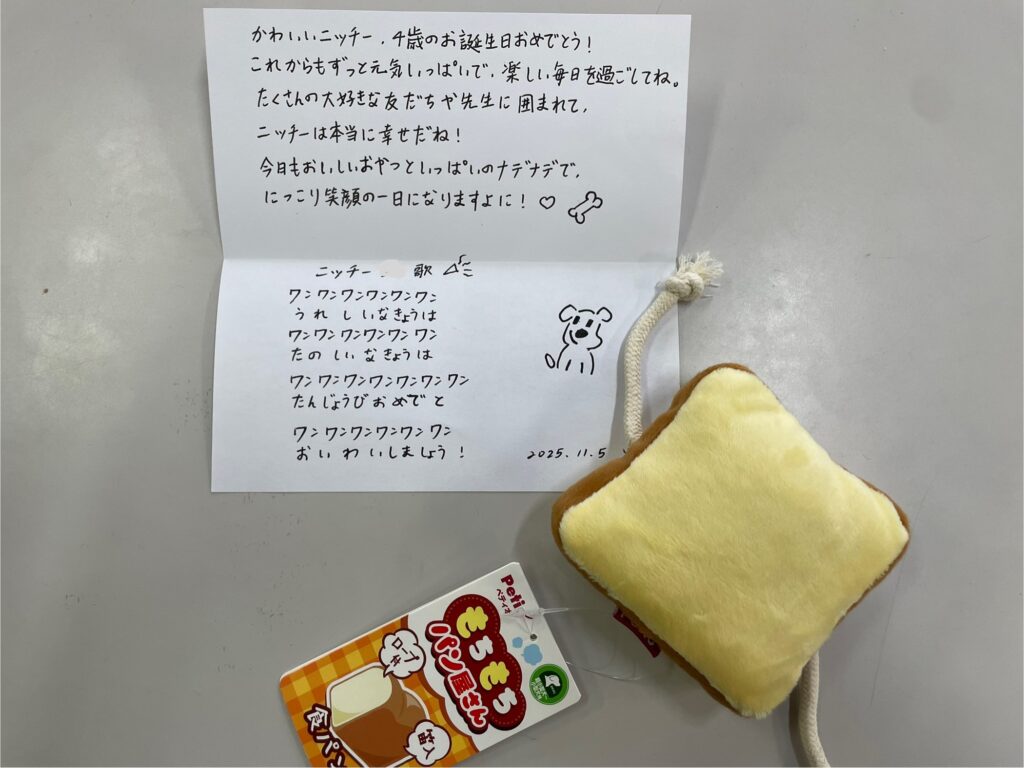 かわいいニッチー、4歳のお誕生日おめでとう!
これからもずっと元気いっぱいで、楽しい毎日を過ごしてね。
たくさんの大好きな友だちや先生に囲まれて、
ニッチーは本当に幸せだね!
今日もおいしいおやつといっぱいのナデナデで、
にっこり笑顔の一日になりますよに!
ニッチー 歌
ワンワンワンワンワンワン
うれしいなきょうは
ワンワンワンワンワンワン
たのしいなきょうは
ワンワンワンワンワンワンワン
たんじょうびおめでと
ワンワンワンワンワンワン
おいわいしましょう!
2025.11.5
Peti
ペティオ
もちもち
パン屋さん
食パン
笛入